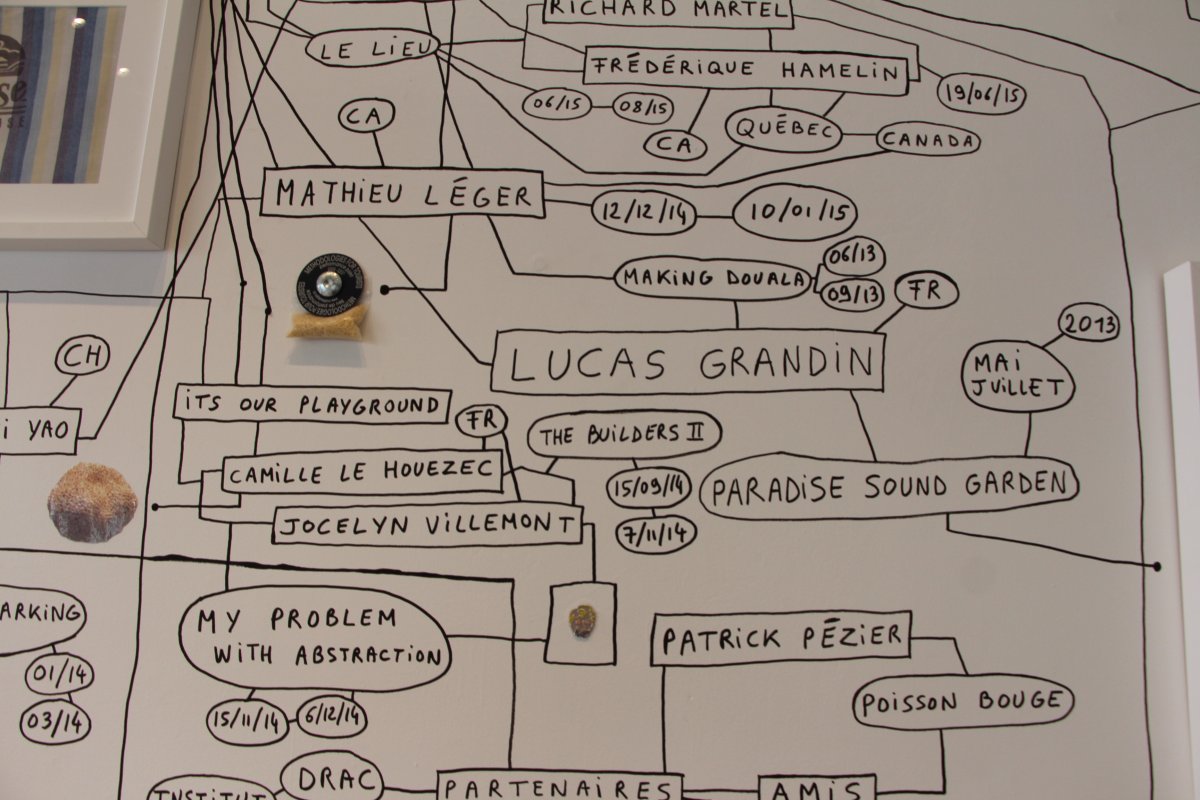 RICHARD MARTEL
LE LIEU
FRÉDÉRIQUE HAMELIN
06/15
08/15
19/06/15
CA
CA
QUÉBEC
CANADA
MATHIEU LÉGER
12/12/14
10/01/15
MAKING DOUALA
06/13
09/13
FR
2013
LUCAS GRANDIN
MAI
JUILLET
CH
i YAO
iTS OUR PLAYGROUND
FR
THE BUILDERS II
CAMILLE LE HOUEZEC
15/09/14
PARADISE SOUND GARDEN
JOCELYN VILLEMONT
7/11/14
ARKING
01/14
03/14
MY PROBLEM
WITH ABSTRACTION
15/11/14
6/12/14
PATRICK PÉZIER
POISSON BOUGE
DRAC
INSTITUT
PARTENAIRES
AMIS